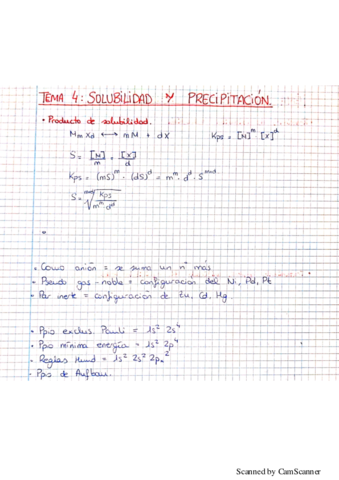 TEMA 4: SOLUBILIDAD Y PRECIPITACIÓN.
• Producto de solubilidad.
Mm Xd ⟷ mM + dX Kps = [M]^m [X]^d
S = [M]/m = [X]/d
Kps = (mS)^m · (dS)^d = m^m · d^d · S^(m+d)
S = ^(m+d)√(Kps / m^m d^d)
• Como anión = se suma un nº más.
• Pseudo gas-noble = configuración del Ni, Pd, Pt
• Par inerte = configuración de Zu, Cd, Hg.
• Ppio exclus. Pauli = 1s² 2s⁴
• Ppio mínima energía = 1s² 2p⁴
• Reglas Hund = 1s² 2s² 2pₓ²
• Ppo de Aufbau.
Scanned by CamScanner